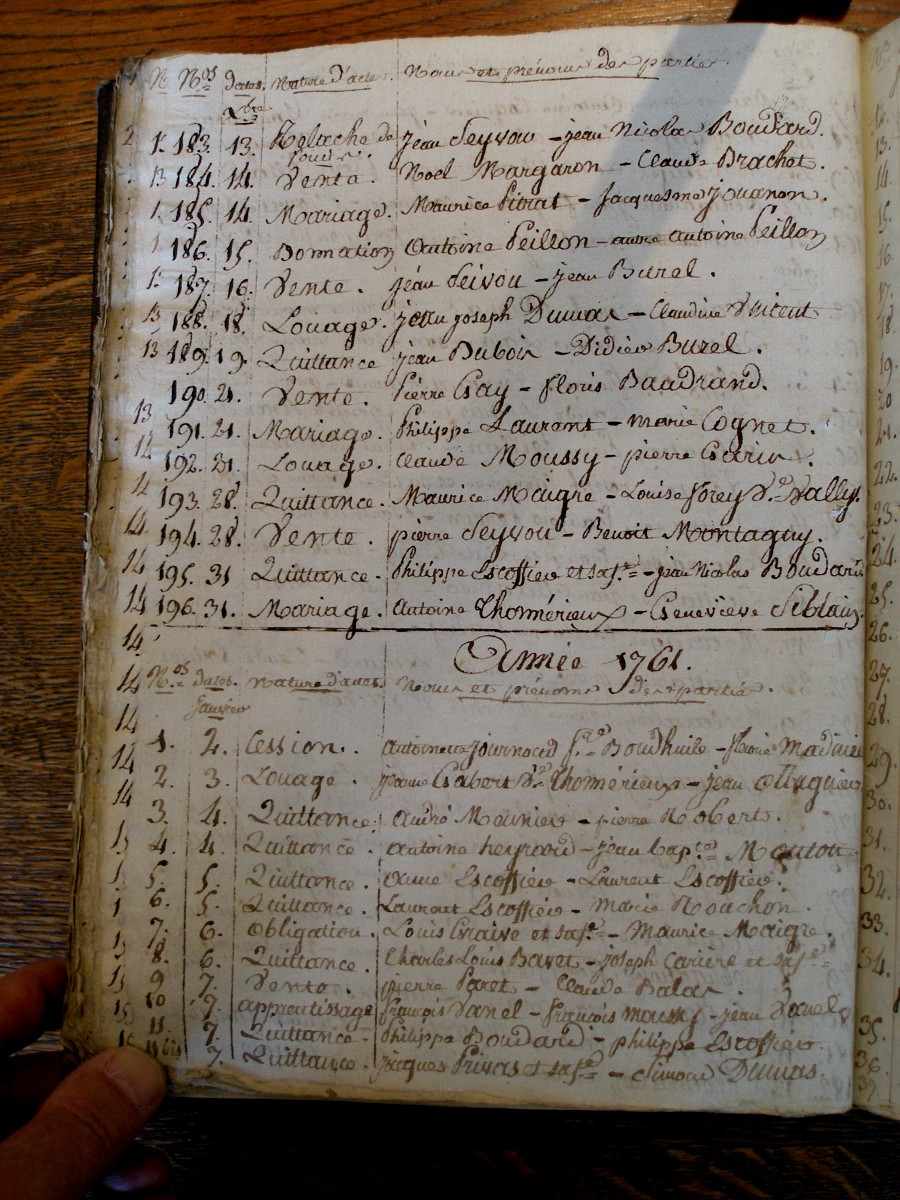 Nos dates. Nature d'actes. Noms et prénoms des parties.
Xbre
183. 13. Relache de jean Seyvou - jean Nicolas Boudard.
184. 14. Vente. Noel Margaron - Claude Brachet.
185. 14. Mariage. Maurice Pitrat - Jouanon.
186. 15. Donnation antoine Peillon - autre antoine Peillon
187. 16. Vente. jean Seivou - jean Burel.
188. 18. Louage. jean joseph Dumas - Claudine Vincent
189. 19. Quittance jean Dubois - Didier Burel.
190. 21. Vente. Pierre Gay - floris Baudrand.
191. 21. Mariage. Philippe Laurent - marie Cognet.
192. 21. Louage. Claude Moussy - pierre Garin.
193. 28. Quittance. Maurice Maigre - Louise forey Ve. Vally.
194. 28. Vente. pierre Seyvou - Benoit Montagny.
195. 31 Quittance. Philippe Escoffier et sa fe. - jean Nicolas Boudard
196. 31. Mariage. antoine Thomérieux - Genevieve Siblain.
Année 1761.
Nos. dates. Nature d'actes. Noms et prénoms des parties.
janvier
1. 2. Cession. antoinette Journoud fe. Boudhuile -
2. 3. Louage. jeanne Gabert Ve. Thomérieux - jean
3. 4. Quittance. andré Meunier - pierre Robert.
4. 4. Quittance. antoine - jean bapte. Mouton
5. 5. Quittance. anne Escoffier - Laurent Escoffier.
6. 5. Quittance. Laurent Escoffier - Marie Rouchon.
7. 6. obligation. Louis Graive et sa fe. - Maurice Maigre.
8. 6. Quittance. Charles Louis Bavet - joseph Cariere et sa fe.
9 7. Vente. pierre Paret - Claude Balas.
10 7. apprentissage françois Vanel - françois moussy - jean Vanel
11. 7. Quittance. Philippe Boudard - philippe Escoffier.
11 bis 7. Quittance. jacques Privas et sa fe. - Simond Dumas.